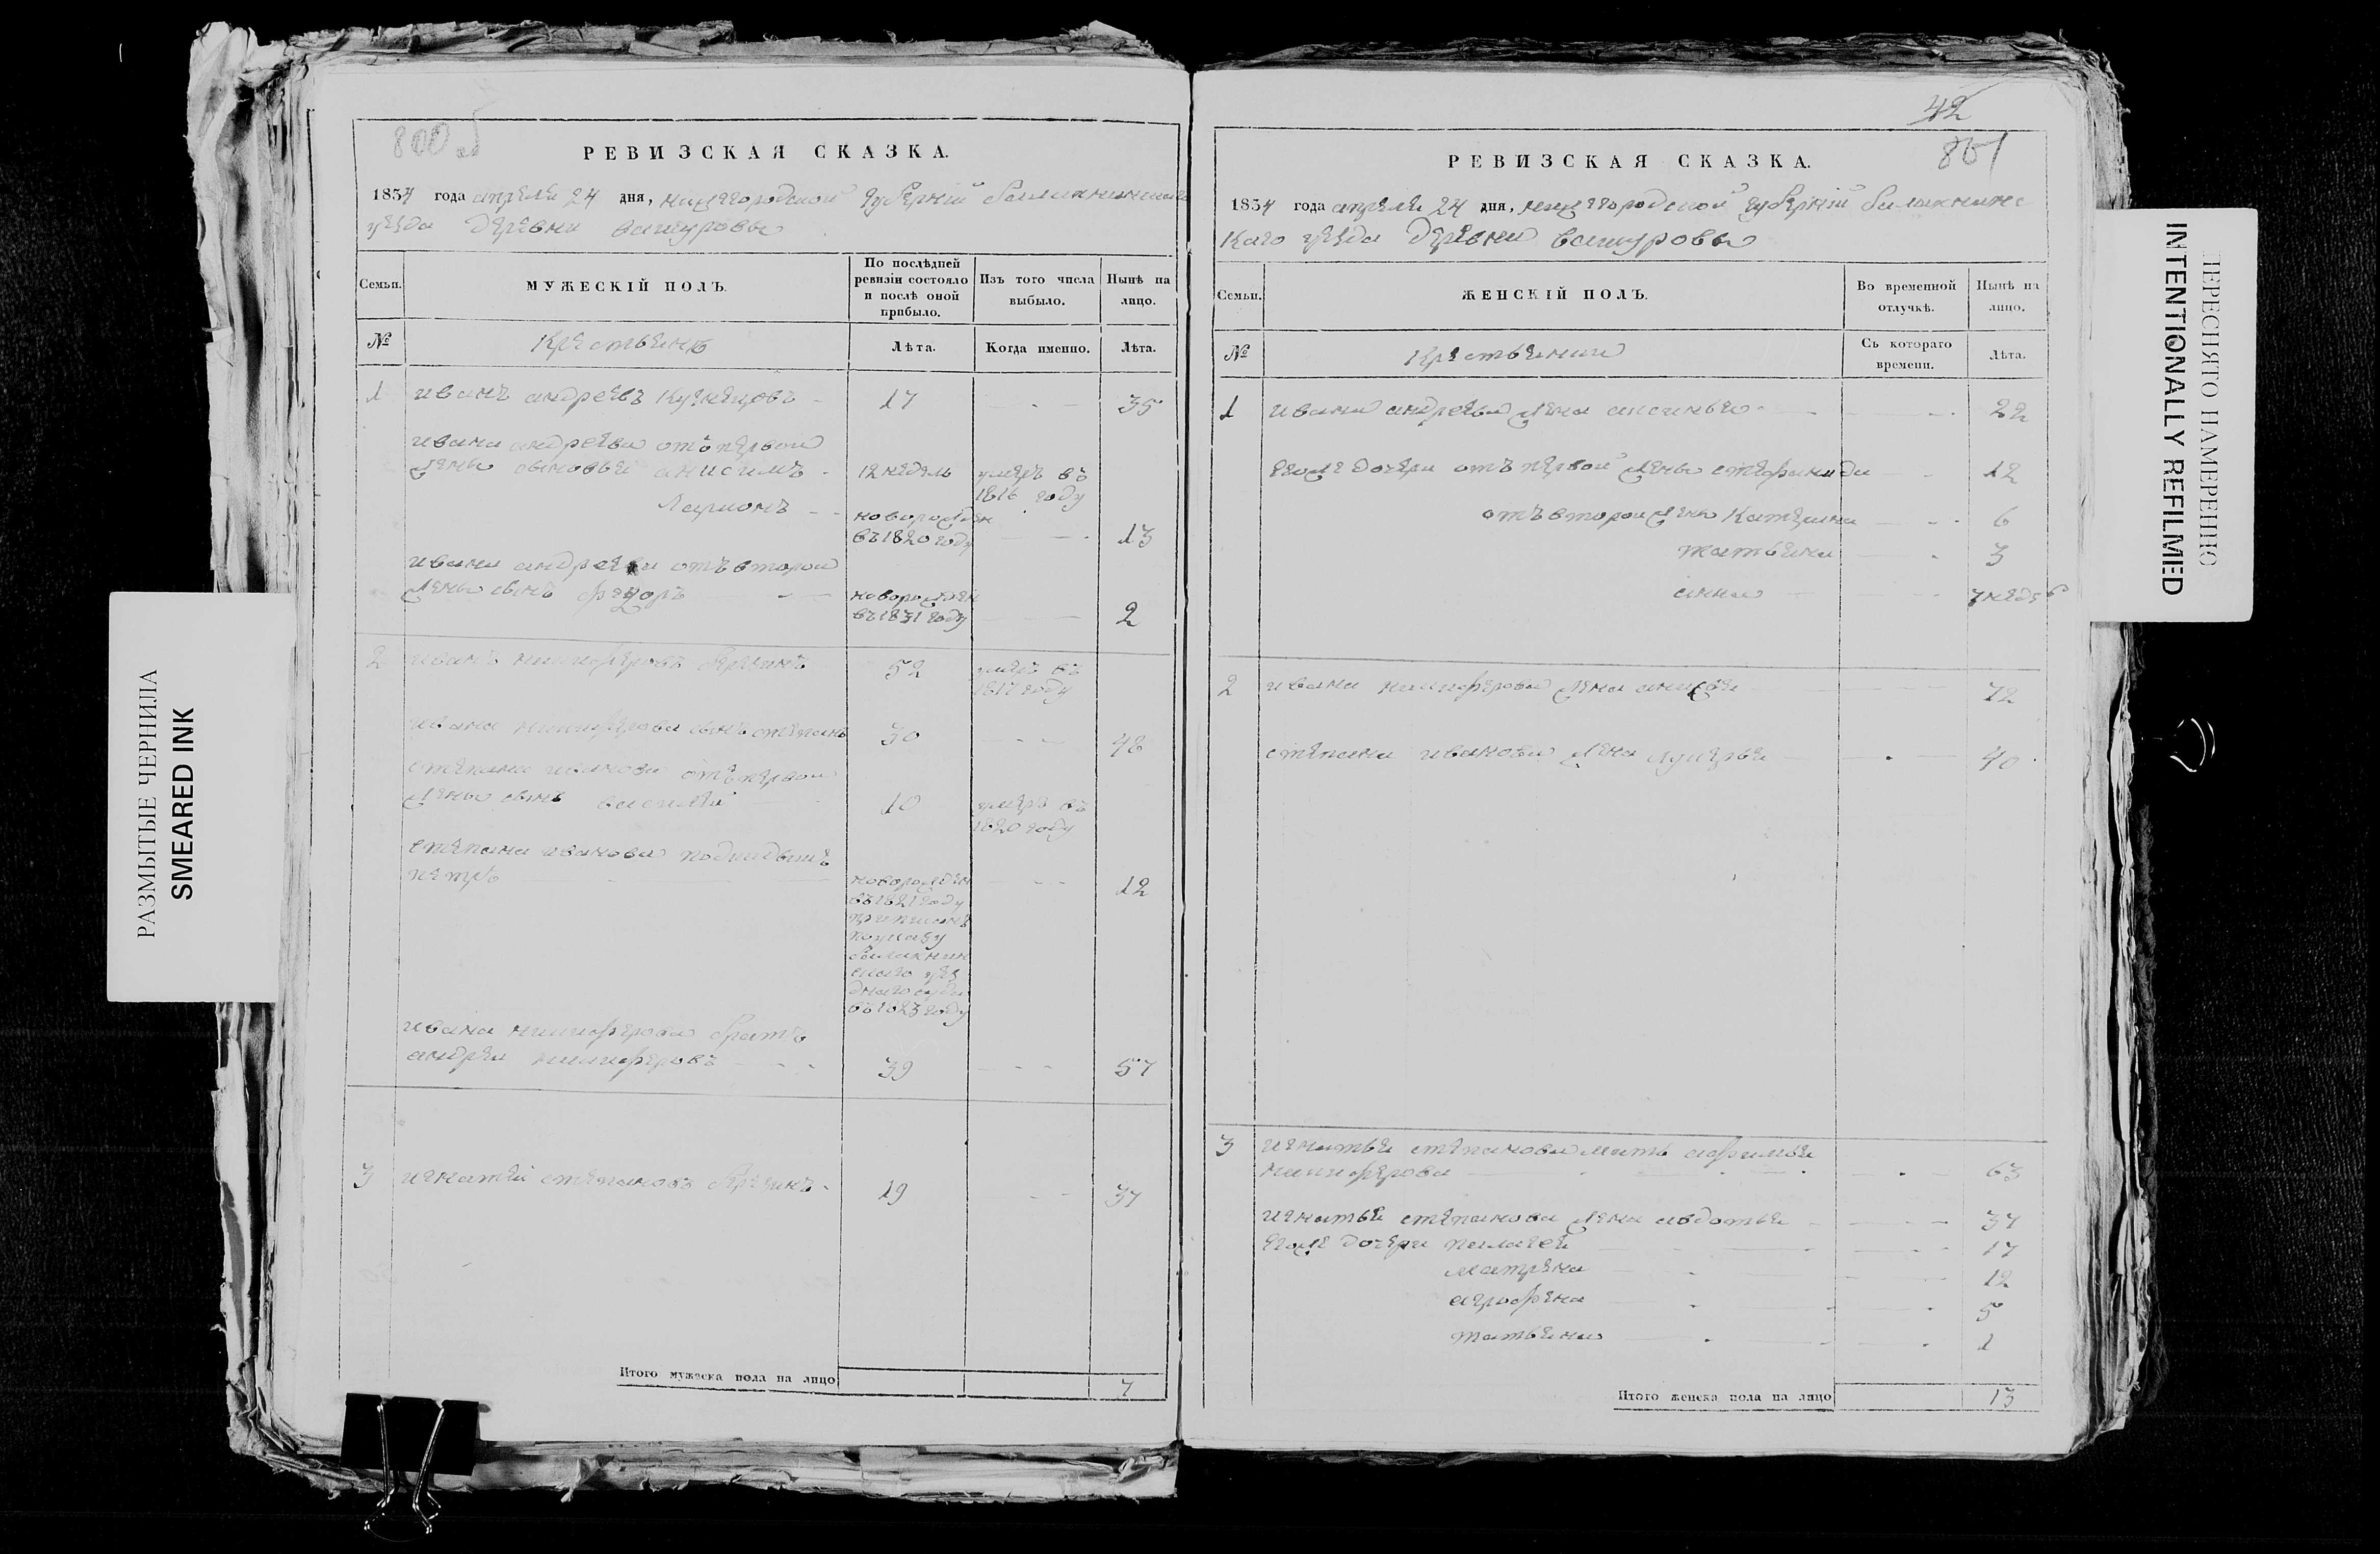 800 об
РЕВИЗСКАЯ СКАЗКА.
1834 года апреля 24 дня, нижегородской губернии балахнинскаго
уезда деревни вашуровы
Семьи.
МУЖЕСКІЙ ПОЛЪ.
По послѣдней ревизіи состояло и послѣ оной прибыло.
Изъ того числа выбыло.
Нынѣ на лицо.
№
Крестьянѣ
Лѣта.
Когда именно.
Лѣта.
1 иванъ андреевъ Кузнецовъ 17 35
ивана андреева отъ первой
жены сыновья анисимъ 12 недель умеръ въ
1816 году
Ларионъ новорожден
въ 1820 году 13
ивана андреева отъ второй
жены сынъ федоръ новорожден
въ 1831 году 2
2 иванъ никифоровъ 52 умеръ въ
1817 году
ивана никифорова сынъ степанъ 30 48
степана иванова отъ первой
жены сынъ василий 10 умеръ въ
1820 году
степана иванова
петръ новорожден 12
въ 1821 году
приписанъ
по указу
балахнин
скаго уез
днаго суда
въ 1823 году
ивана никифорова братъ
андрей никифоровъ 39 57
3 игнатий степановъ 19 37
Итого мужеска пола на лицо 7
42
801
РЕВИЗСКАЯ СКАЗКА.
1834 года апреля 24 дня, нижегородской губернии балахнинс
каго уезда деревни вашуровы
Семьи.
ЖЕНСКІЙ ПОЛЪ.
Во временной отлучкѣ.
Нынѣ на лицо.
№
Крестьянки
Съ котораго времени.
Лѣта.
1 ивана андреева жена аксинья 22
егоже дочери от первой жены степанида 12
отъ второй жены Катерина 6
татьяна 3
анна 7 недель
2 ивана никифорова жена 72
степана иванова жена лукерья 40
3 игнатья степанова мать афимья
никифорова 63
игнатья степанова жена авдотья 37
егоже дочери пелагея 17
матрена 12
аграфена 5
татьяна 1
Итого женска пола на лицо 13
РАЗМЫТЫЕ ЧЕРНИЛА
SMEARED INK
ПЕРЕСНЯТО НАМЕРЕННО
INTENTIONALLY REFILMED